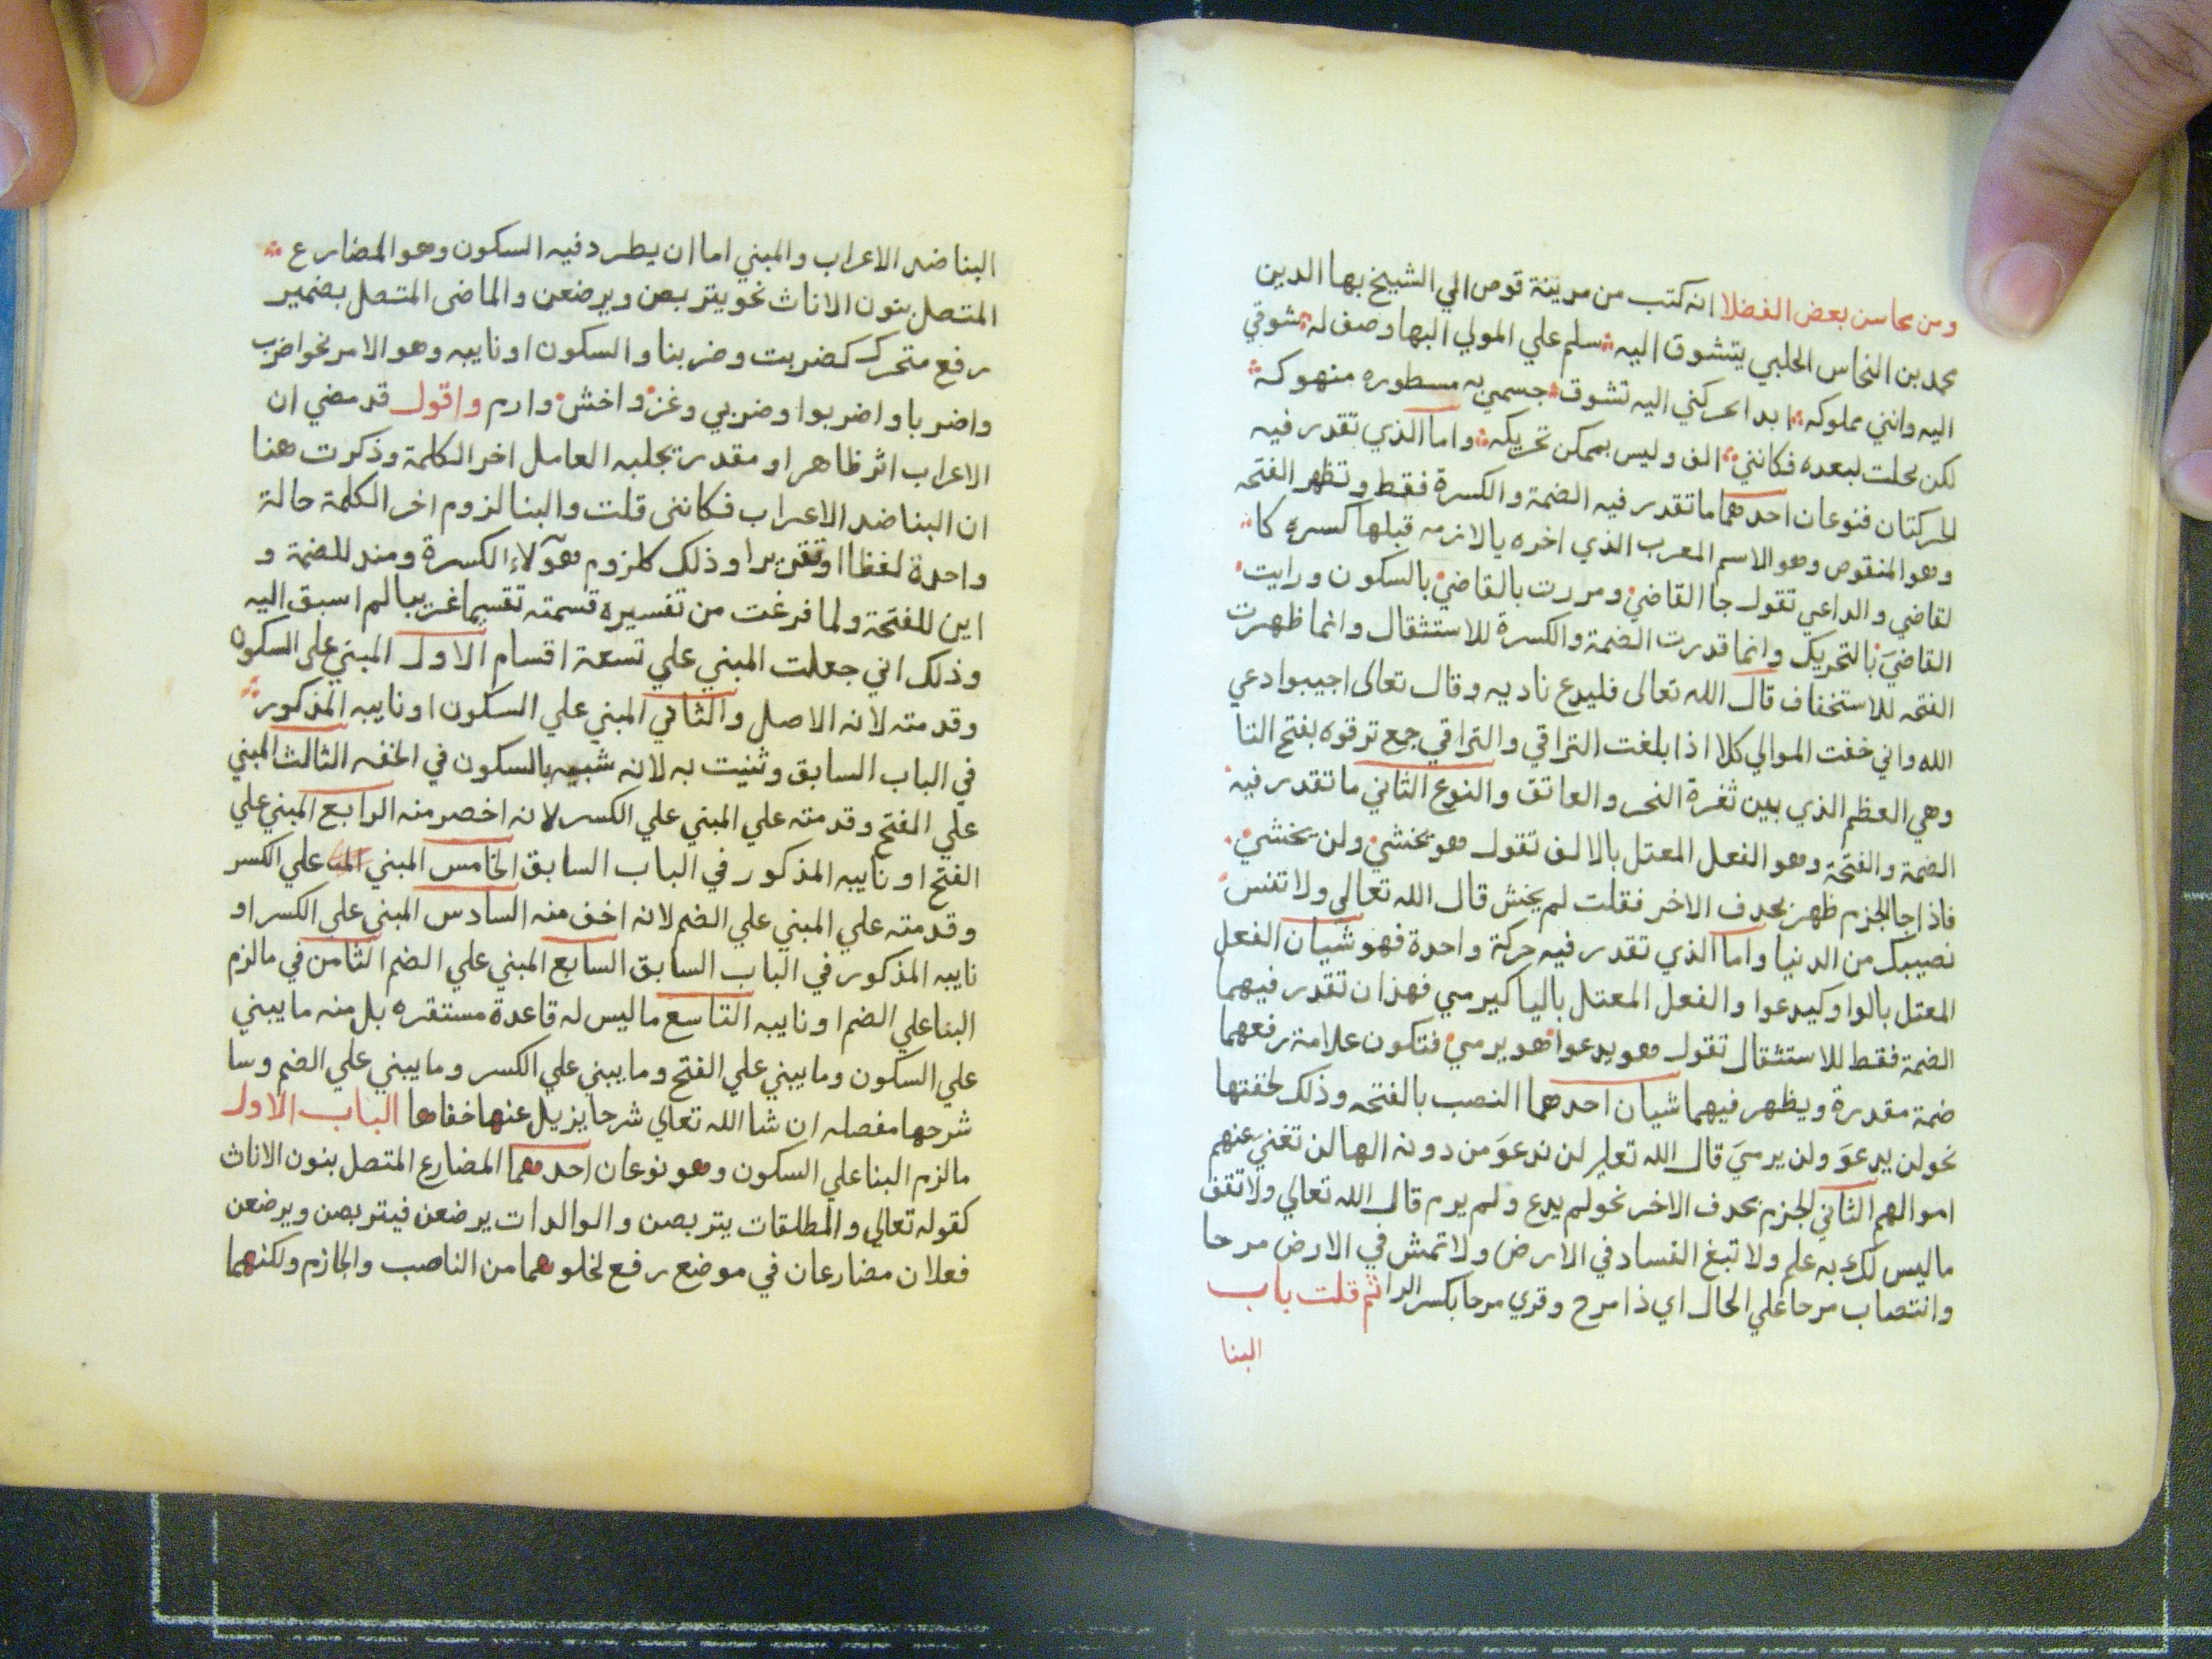 ومن محاسن بعض الفضلا انه كتب من مدينة قوص الي الشيخ بها الدين
محمد بن النحاس الحلبي يتشوق اليه سلم علي المولي البها وصف له شوقي
اليه وانني مملوكه ابدا يحركني اليه تشوق جسمي به مسطوره منهوكه
لكن نحلت لبعده فكانني الف وليس بممكن تحريكه واما الذي تقدر فيه
الحركتان فنوعان احدهما ما تقدر فيه الضمة والكسرة فقط وتظهر الفتحه
وهو المنقوص وهو الاسم المعرب الذي اخره يا لازمه قبلها كسره كا
لقاضي والداعي تقول جا القاضي ومررت بالقاضي بالسكون ورايت
القاضيَ بالتحريك وانما قدرت الضمة والكسرة للاستثقال وانما ظهرت
الفتحه للاستخفاف قال الله تعالى فليدع ناديه وقال تعالى اجيبوا دعي
الله واني خفت الموالي كلا اذا بلغت التراقي والتراقي جمع ترقوه بفتح التا
وهي العظم الذي بين ثغرة النحر والعاتق والنوع الثاني ما تقدر فيه
الضمة والفتحة وهو الفعل المعتل بالالف تقول هو يخشي ولن يخشي
فاذا جا الجزم ظهر بحدف الاخر فقلت لم يخش قال الله تعالي ولا تنس
نصيبك من الدنيا واما الذي تقدر فيه حركة واحدة فهو شيان الفعل
المعتل بالواو كيدعوا والفعل المعتل باليا كيرمي فهذان تقدر فيهما
الضمة فقط للاستثقال تقول هو يدعوا هو يرمي فتكون علامة رفعهما
ضمة مقدرة ويظهر فيهما شيان احدهما النصب بالفتحه وذلك لخفتها
نحو لن يدعوَ ولن يرميَ قال الله تعلي لن ندعوَ من دونه الها لن تغنيَ عنهم
اموالهم الثاني الجزم بحدف الاخر نحو لم يدع ولم يرم قال الله تعالي ولا تقف
ما ليس لك به علم ولا تبغ الفساد في الارض ولا تمش في الارض مرحا
وانتصاب مرحا علي الحال اي ذا مرح وقري مرحا بكسر الرا ثم قلت باب
البنا
البنا ضد الاعراب والمبني اما ان يطرد فيه السكون وهو المضارع
المتصل بنون الاناث نحو يتربصن ويرضعن والماضى المتصل بضمير
رفع متحرك كضربت وضربنا والسكون او نايبه وهو الامر نحو اضرب
واضربا واضربوا وضربي وغز واخش وارم واقول قد مضي ان
الاعراب اثر ظاهر او مقدر يجلبه العامل اخر الكلمة وذكرت هنا
ان البنا ضد الاعراب فكانني قلت والبنا لزوم اخر الكلمة حالة
واحدة لفظا او تقديرا وذلك كلزوم هوٓلاءِ الكسرة ومنذ للضمة و
اين للفتحة ولما فرغت من تفسيره قسمته تقسيما غريبا لم اسبق اليه
وذلك اني جعلت المبني علي تسعة اقسام الاول المبني على السكون
وقدمته لانه الاصل والثاني المبني علي السكون او نايبه المذكور
في الباب السابق وثنيت به لانه شبيه بالسكون في الخفه الثالث المبني
علي الفتح وقدمته علي المبني علي الكسر لانه اخصر منه الرابع المبني علي
الفتح او نايبه المذكور في الباب السابق الخامس المبني علي الكسر
وقدمته علي المبني علي الضم لانه اخف منه السادس المبني علي الكسر او
نايبه المذكور في الباب السابق السابع المبني علي الضم الثامن في ما لزم
البنا علي الضم او نايبه التاسع ما ليس له قاعدة مستقره بل منه ما يبني
علي السكون وما يبني علي الفتح وما يبني علي الكسر وما يبني علي الضم وسا
شرحها مفصله ان شا الله تعالي شرحا يزيل عنها خفاها الباب الاول
ما لزم البنا علي السكون وهو نوعان احدهما المضارع المتصل بنون الاناث
كقوله تعالي والمطلقات يتربصن والوالدات يرضعن فيتربصن ويرضعن
فعلان مضارعان في موضع رفع لخلوهما من الناصب والجازم ولكنهما